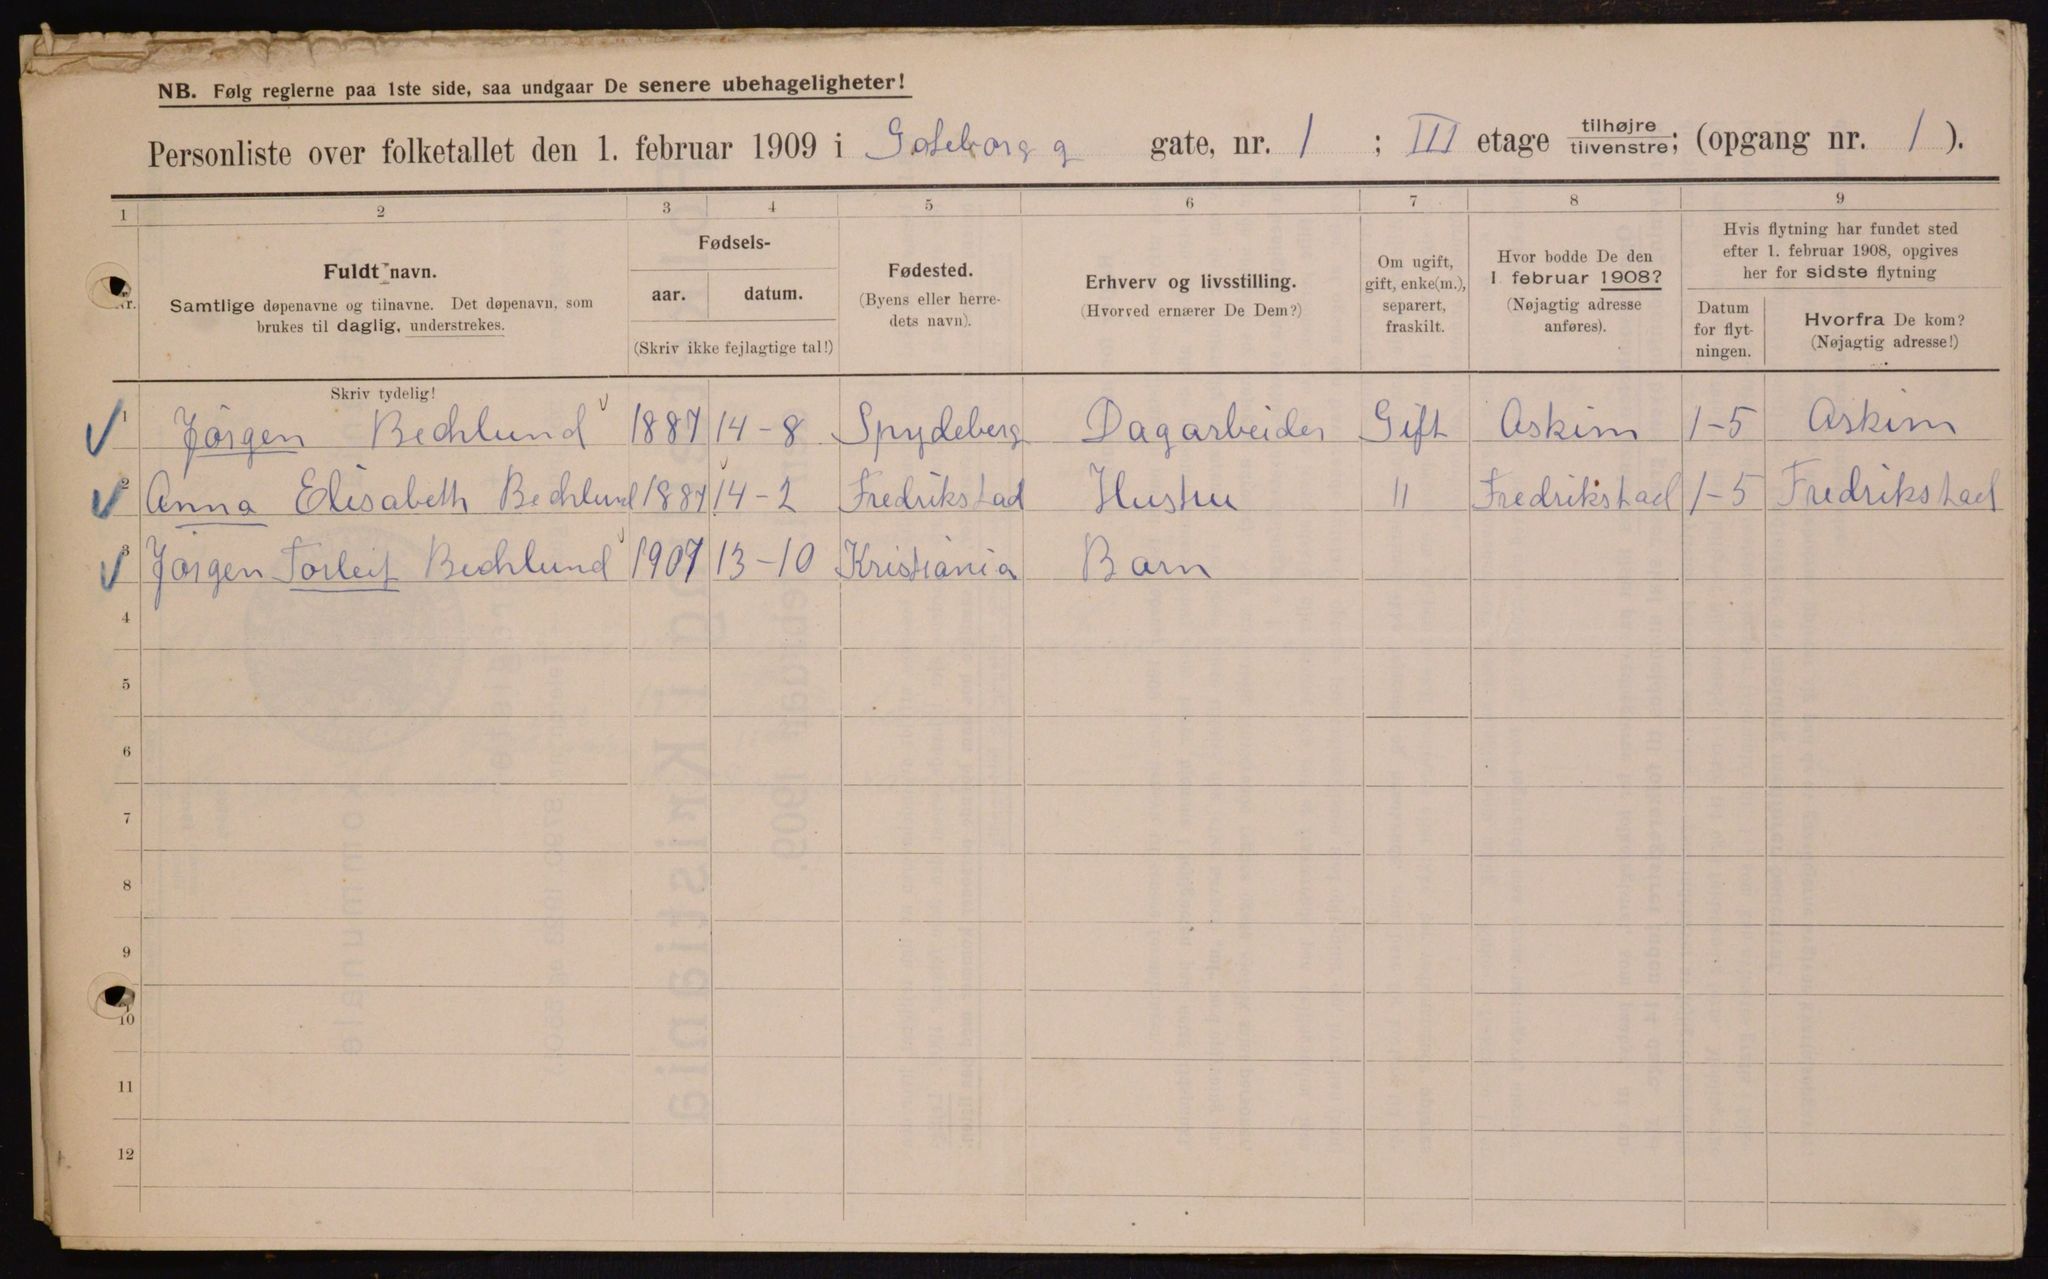 NB. Følg reglerne paa 1ste side, saa undgaar De senere ubehageligheter!
Personliste over folketallet den 1. februar 1909 i Goteborg g gate, nr. 1 ; III etage tilhøjre tilvenstre; (opgang nr. 1 ).
1 2 3 4 5 6 7 8 9
Nr.
Fuldt navn.
Samtlige døpenavne og tilnavne. Det døpenavn, som
brukes til daglig, understrekes.
Fødsels-
aar. datum.
(Skriv ikke fejlagtige tal!)
Fødested.
(Byens eller herre-
dets navn).
Erhverv og livsstilling.
(Hvorved ernærer De Dem?)
Om ugift,
gift, enke(m.),
separert,
fraskilt.
Hvor bodde De den
1. februar 1908?
(Nøjagtig adresse
anføres).
Hvis flytning har fundet sted
efter 1. februar 1908, opgives
her for sidste flytning
Datum
for flyt-
ningen.
Hvorfra De kom?
(Nøjagtig adresse!)
Skriv tydelig!
1 Jørgen Bechlund 1887 14-8 Spydeberg Dagarbeider Gift Askim 1-5 Askim
2 Anna Elisabeth Bechlund 1887 14-2 Fredrikstad Hustru " Fredrikstad 1-5 Fredrikstad
3 Jørgen Torleif Bechlund 1907 13-10 Kristiania Barn
4
5
6
7
8
9
10
11
12